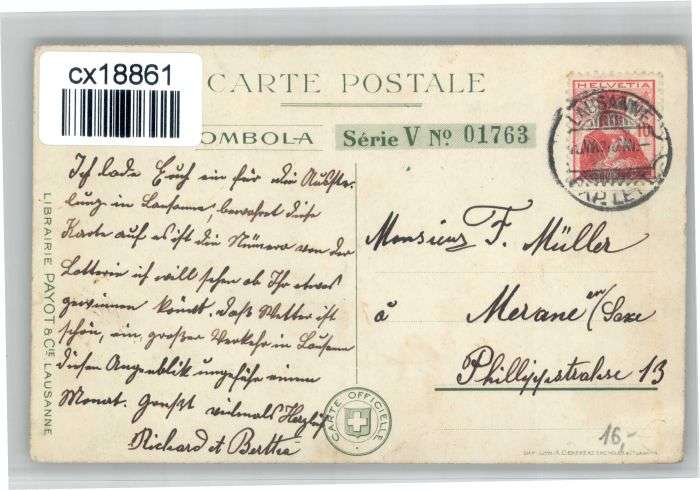 cx18861
CARTE POSTALE
OMBOLA Série V Nº 01763
HELVETIA
LAUSANNE
Ich lade Euch ein für die Ausste-
lung in Lausanne, bewahret diese
Karte auf es ist die Número von der
Lotterie ich will sehen ob Ihr etwas
gewinnen könnt. daß Wetter ist
schön, ein, großer Verkehr in Lausann
diesen Augenblik ungefähr einen
Monat. Grüßt vielmals Herzlich
Richard et Bertha
Monsieur F. Müller
à Merane en/Saxe
Phillippstrasse 13
LIBRAIRIE PAYOT & Cie LAUSANNE
CARTE OFFICIELLE
16,-